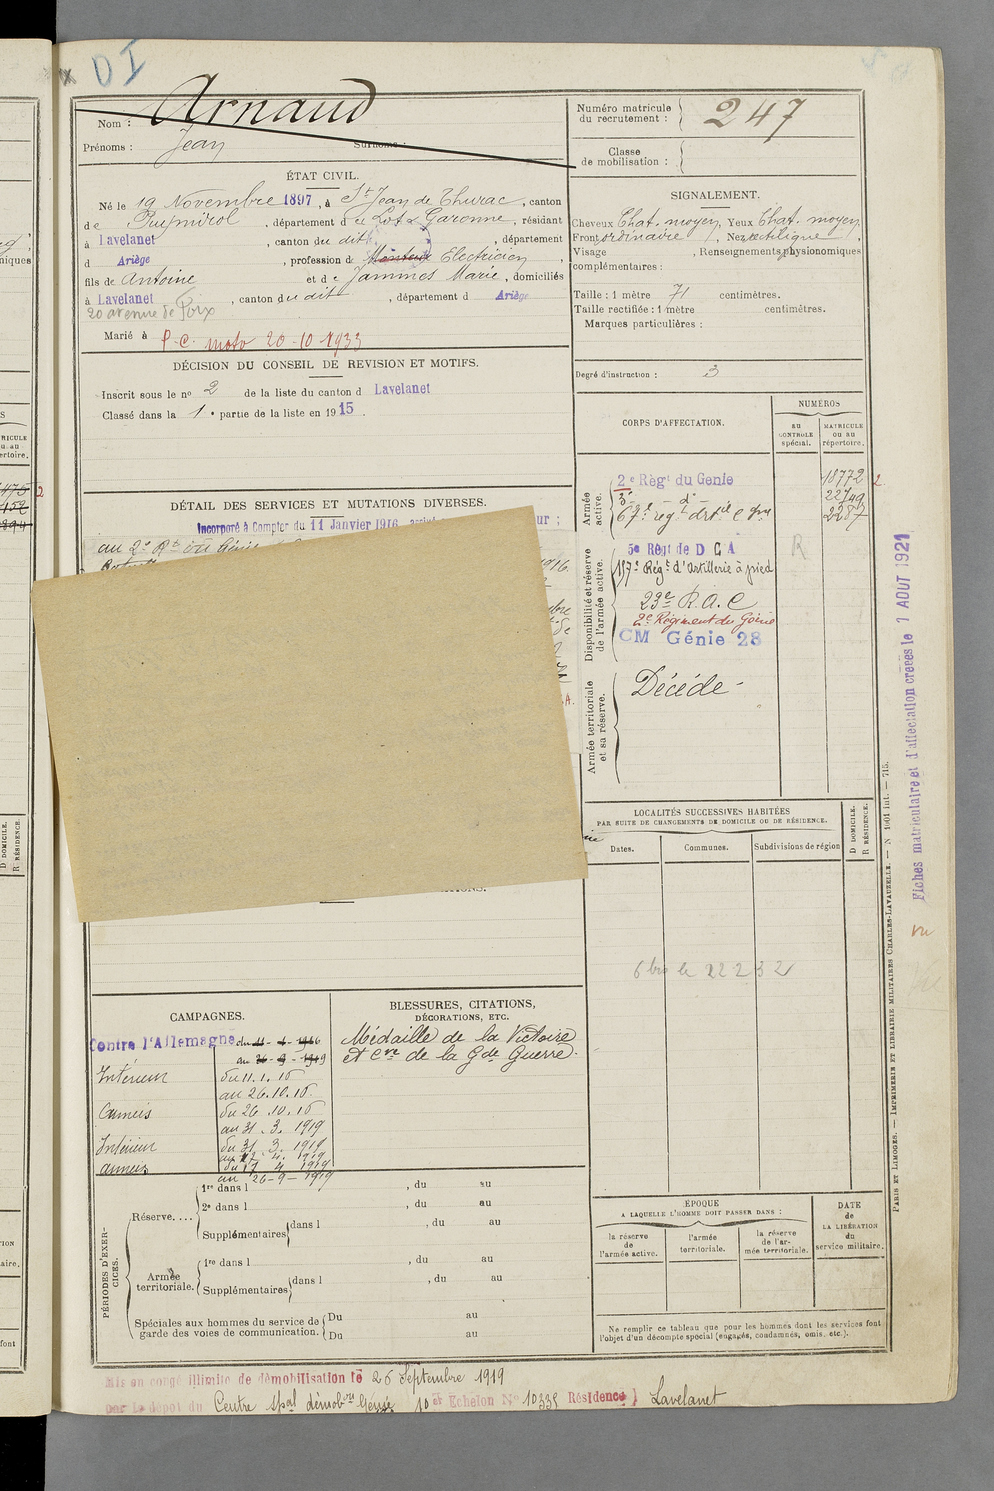 D I
Arnaud
Nom :
Prénoms : Jean Surnoms :
Numéro matricule du recrutement : 247
Classe de mobilisation :
ÉTAT CIVIL.
Né le 19 Novembre 1897, à St Jean de Thurac, canton
de Puymirol, département de Lot & Garonne, résidant
à Lavelanet, canton du dit, département
d Ariège, profession de Electricien,
fils de Antoine et de Jammes Marie, domiciliés
à Lavelanet, canton du dit, département d Ariège
20 avenue de Foix
Marié à P.C. moto 20-10-1933
SIGNALEMENT.
Cheveux Chat. moyen, Yeux Chat. moyen
Front ordinaire, Nez rectiligne,
Visage , Renseignements physionomiques
complémentaires :
Taille : 1 mètre 71 centimètres.
Taille rectifiée : 1 mètre centimètres.
Marques particulières :
Degré d'instruction : 3
DÉCISION DU CONSEIL DE REVISION ET MOTIFS.
Inscrit sous le no 2 de la liste du canton d Lavelanet
Classé dans la 1e partie de la liste en 1915.
DÉTAIL DES SERVICES ET MUTATIONS DIVERSES.
Incorporé à Compter du 11 Janvier 1916
au 2e Rt du Génie
CORPS D'AFFECTATION.
NUMÉROS
au contrôle spécial.
matricule ou au répertoire.
Armée active.
2e Régt du Génie 18772
3e - do - 22749
67e rég 2287
Disponibilité et réserve de l'armée active.
5e Régt de D C A
157e Régt d'Artillerie à pied
R
23e R.A.C
2e Régiment du Génie
CM Génie 28
Armée territoriale et sa réserve.
Décédé
LOCALITÉS SUCCESSIVES HABITÉES
PAR SUITE DE CHANGEMENTS DE DOMICILE OU DE RÉSIDENCE.
Dates. Communes. Subdivisions de région
D DOMICILE.
R RÉSIDENCE.
le 22 2 32
CAMPAGNES.
Contre l'Allemagne du 11-1-1916
au 26-9-1919
Intérieur du 11.1.16
au 26.10.16
Armées du 26.10.16
au 31.3.1919
Intérieur du 31.3.1919
au 17.4.1919
Armées du 17 4 1919
au 26-9-1919
BLESSURES, CITATIONS,
DÉCORATIONS, ETC.
Médaille de la Victoire
et Cve de la Gde Guerre.
PÉRIODES D'EXERCICES.
Réserve....
1re dans l , du au
2e dans l , du au
Supplémentaires dans l , du au
Armée territoriale.
1re dans l , du au
Supplémentaires dans l , du au
Spéciales aux hommes du service de garde des voies de communication. Du au
Du au
ÉPOQUE
A LAQUELLE L'HOMME DOIT PASSER DANS :
la réserve de l'armée active.
l'armée territoriale.
la réserve de l'armée territoriale.
DATE de LA LIBÉRATION du service militaire.
Ne remplir ce tableau que pour les hommes dont les services font
l'objet d'un décompte spécial (engagés, condamnés, omis, etc.).
Mis en congé illimité de démobilisation le 26 Septembre 1919
par le dépôt du Centre spal démobon Génie 10e Echelon No 10335 Résidence) Lavelanet
Fiches matriculaire et d'affectation créées le 1 AOUT 1921
vu
PARIS ET LIMOGES. — IMPRIMERIE ET LIBRAIRIE MILITAIRES CHARLES-LAVAUZELLE. — N 1001 int. — 715.